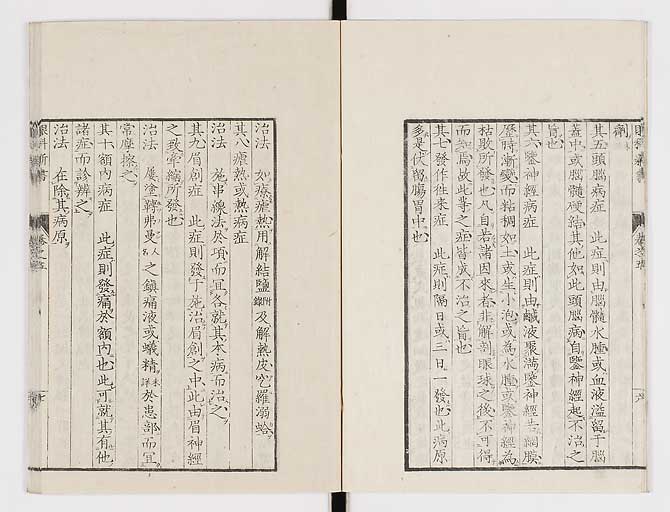 劑
其五頭腦病症 此症則由腦髓水腫或血液溢留于腦
蓋中或腦髓硬結其他如此頭腦病自鑒神經起不治之
旨也
其六鑒神經病症 此症則由鹹液聚滿鑒神經共網膜
歷時漸變而粘稠如土或生小泡或為水腫或鑒神經為
枯敗所發也凡自若諸因來者非解剖眼球之後不可得
而知焉故此等之症皆屬不治之旨也
其七發作徃来症 此症則隔日或三日一發也此病原
多是伏留腸胃中也
治法 如療瘧熱用解結鹽附錄及解熱皮乞羅溺蛤
其八瘭熱或熱病症
治法 施串線法於項而宜各就其本病而治之
其九眉創症 此症則發于施治眉創之中此由眉神經
之致攣縮所發也
治法 屢塗弗叟人名之鎮痛液或蟻精未詳於患部而宜
常摩擦之
其十額內病症 此症則發痛於額內也此可就其有他
諸症而診辨之
治法 在除其病原
眼科新書
卷之五
六